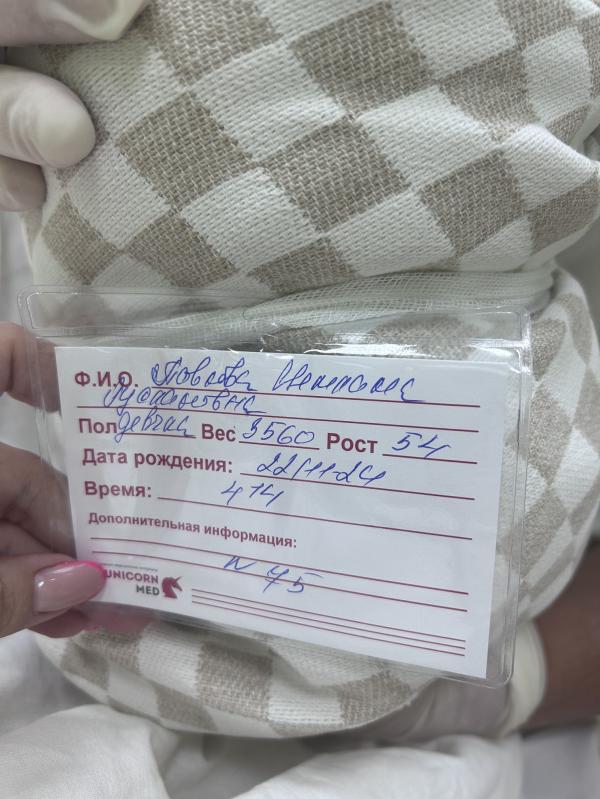 Ф.И.О. Павлова Светлана
Пол девочка Вес 3560 Рост 54
Дата рождения: 22/11-24
Время: 4 14
Дополнительная информация:
N 75
UNICORN
MED